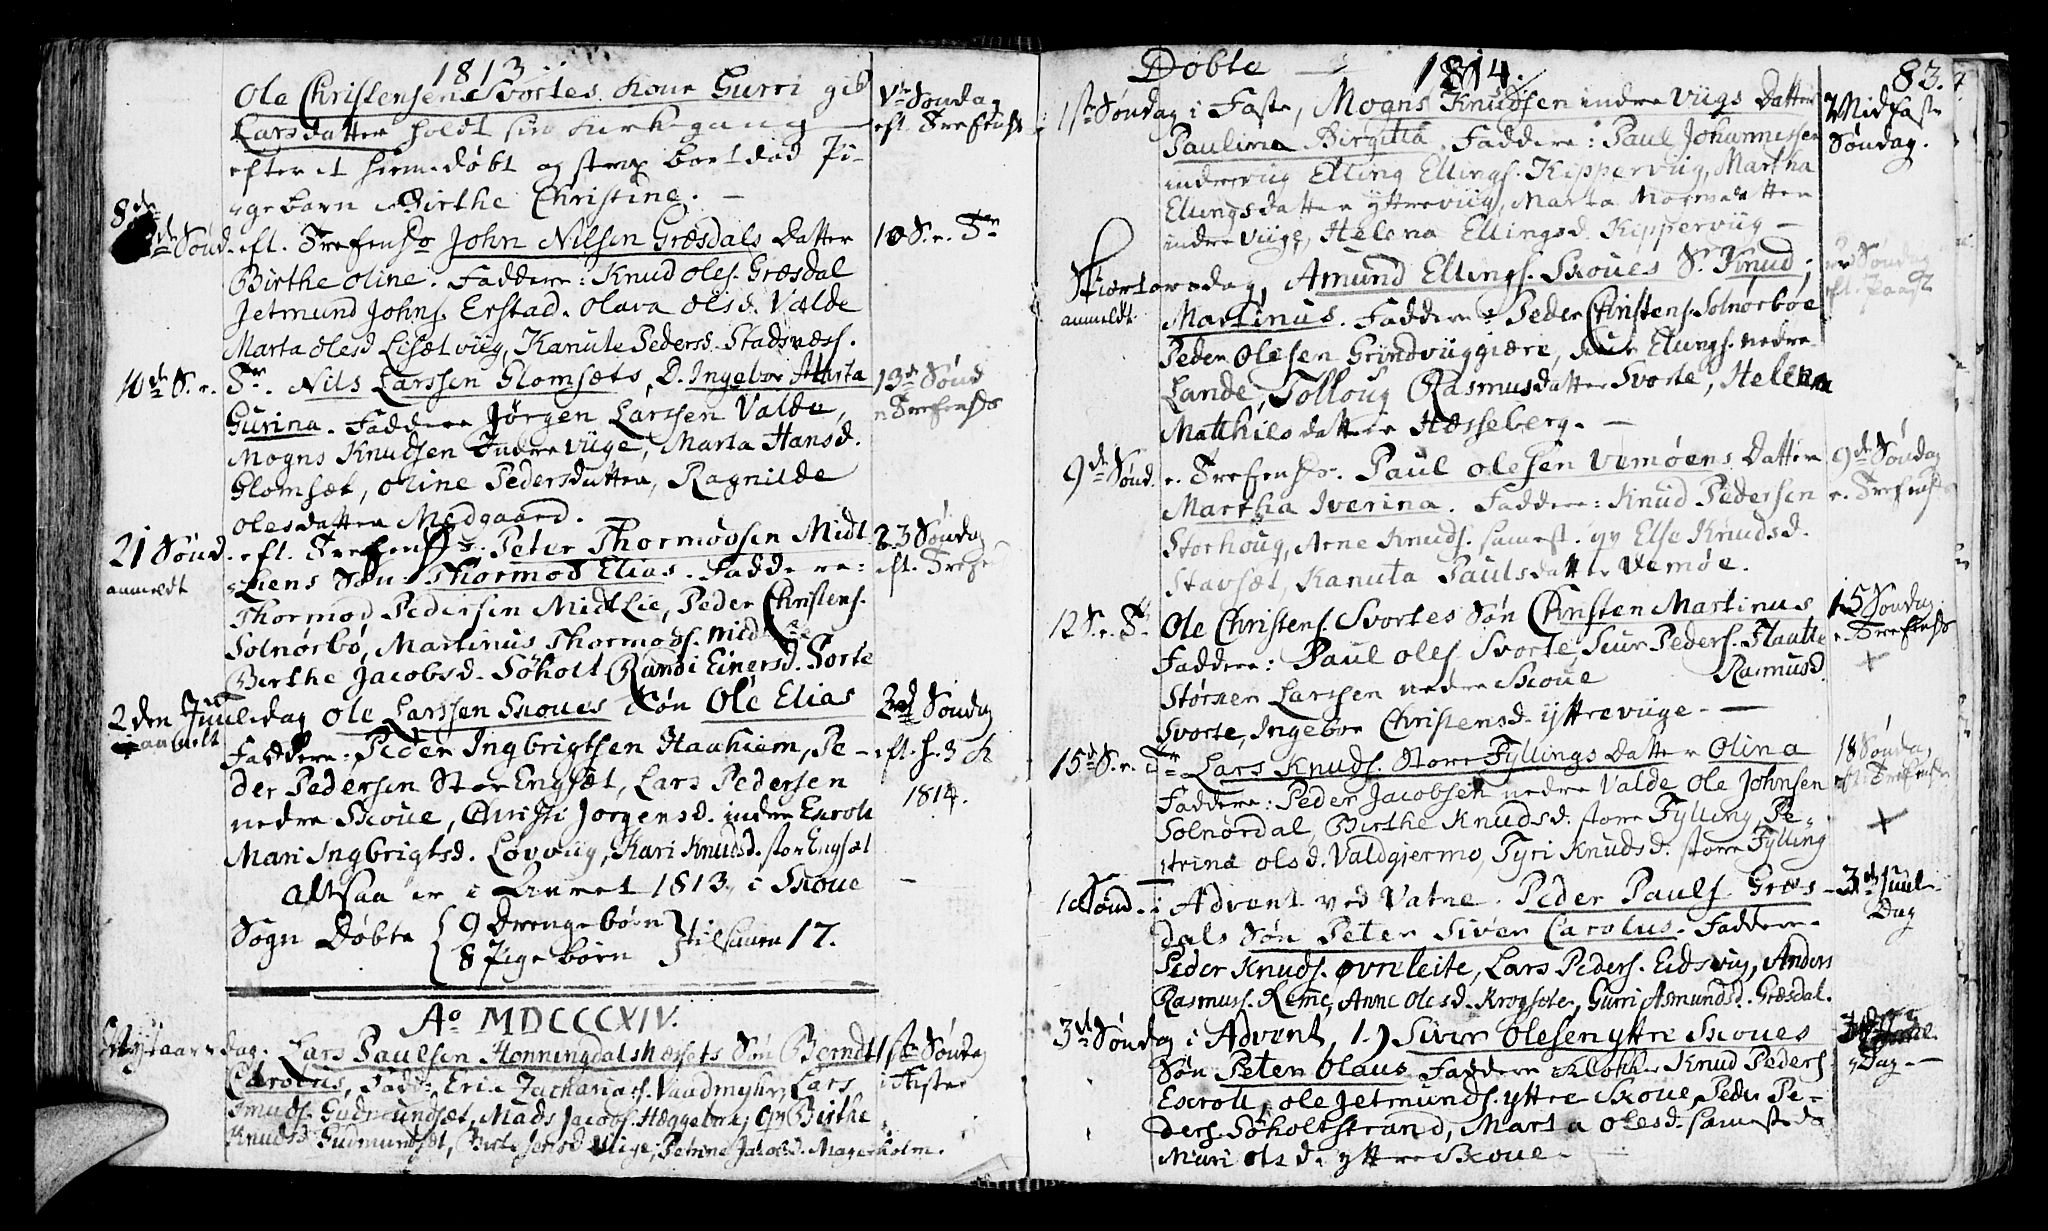 1813
Ole Christensen Svortes Kone Gurri
Larsdatter holdt sin Kirkegang
efter et hiemedøbt og strax bortdød Pi-
gebarn Birthe Christine. —
Vte Søndag
eft. Trefensh
8de
Sønd. eft. Trefensh John Nilsen Græsdals Datter
Birthe Oline. Faddere: Knud Oles. Græsdal
Jetmund Johns. Erstad. Olava Olsd. Valde
Marta Olesd Lisætviig, Kanute Pedersd. Stadsnæss.
10 S. e. Tr
10de S. e. Tr. Nils Larssen Glomsæts, D. Ingebor Marta
Gurina. Faddere Jørgen Larssen Valde,
Mogns Knudsen Indreviige, Marta Hansd.
Glomsæt, Oline Pedersdatter, Ragnilde
Olesdatter Medgaard.
13de Sønd
e. Trefensh
21 Sønd. eft. Trefensh. Peter Thormodsen Midt
anmeldt Liens Søn: Thormod Elias. Faddere:
Thormod Pedersen Midtlie, Peder Christens.
Solnørbø, Martinus Thormods. Midtlie
Birthe Jacobsd. Søholt Randi Einersd. Svorte
23 Søndag
eft. Trefe
2den Juuledag Ole Larssen Skoues Søn Ole Elias
Faddere: Peder Ingbrigtsen Haahiem, Pe-
der Pedersen Stor Engsæt, Lars Pedersen
nedre Skoue, Christi Jorgensd. indre Exroll
Mari Ingbrigtsd. Løvviig, Kari Knudsd. stor Engsæt
2den Søndag
eft. h. 3 K
1814.
Altsaa er i Aaret 1813 i Skoue —
Sogn Døbte { 9 Drengebørn } tilsamen 17.
8 Pigebørn
Ao MDCCCXIV.
Nytaarsdag. Lars Paulsen Honningdalsnæssets Søn Berndt
Carolus, Fadd: Eric Zachariass. Vaadmyhr, Lars
Knuds. Gudmundsæt, Mads Jacobs. Hæggebere, Gv. Birthe
Knudsd Gudmundsæt, Petrine Jacobsd. Magerholm.
1ste Søndag
i Faste
Døbte — 1814. 83.
1ste Søndag i Faste, Mogns Knudsen indre Viigs Datter
Paulina Birgitta. Faddere: Paul Johannessen
indreviig Elling Ellings. Kipperviig, Martha
Ellingsdatter yttreviig, Marta Mognsdatter
indre viige, Helena Ellingsd. Kipperviig —
Midfaste
Søndag.
Skiertorsdag, Amund Ellings. Skoues S. Knud
anmeldt Martinus. Faddere: Peder Christens. Solnørbøe
Peder Olesen Grindviiggiære, Ellings. nedre
Lande, Tolloug Rasmusdatter Svorte, Helena
Matthisdatter Hesseberg. —
Søndag
eft. Paask
9de Sønd. e. Trefensh. Paul Olesen Vemøens Datter
Martha Iverina. Faddere: Knud Pedersen
Storhoug, Arne Knuds. samest. gv Else Knudsd.
Stavsæt, Kanuta Paulsdatter Vemøe.
9de Søndag
e. Trefensh
12 S. e. Tr. Ole Christens. Svortes Søn Christen Martinus
Faddere: Paul Oles. Svorte, Siur Peders. Flaatte
Størker Larssen nedre Skoue Rasmusd.
Svorte, Ingebor Christensd. yttreviige. —
15 Søndag
e. Trefensh
+
15de S. e. Tr Lars Knuds. Store Fyllings Datter Olina
Faddere: Peder Jacobsen nedre Valde Ole Johnsen
Solnørdal, Birthe Knudsd. store Fylling, Pe-
trina Olsd. Valdgjermo, Tyri Knudsd. store Fylling
18 Søndag
eft. Trefensh
+
1 Sønd. i Advent ved Vatne. Peder Pauls. Græs-
dals Søn Peter Siver Carolus. Faddere.
Peder Knuds. Øvrleite, Lars Peders. Eidsvig, Anders
Rasmuss. Reme, Anne Olesd. Krogsæter, Gurri Asmundsd. Græsdal.
3die Juul-
Dag
3de Søndag i Advent, 1.) Siver Olesen yttre Skoues
Søn Peter Olaus Faddere Klokker Knud Peders
Exroll, Ole Jetmunds. yttre Skoue, Peder Pe-
ders. Søholtstrand, Marta Olesd. sameste
Mari Olsd. yttre Skoue. —
Dag —